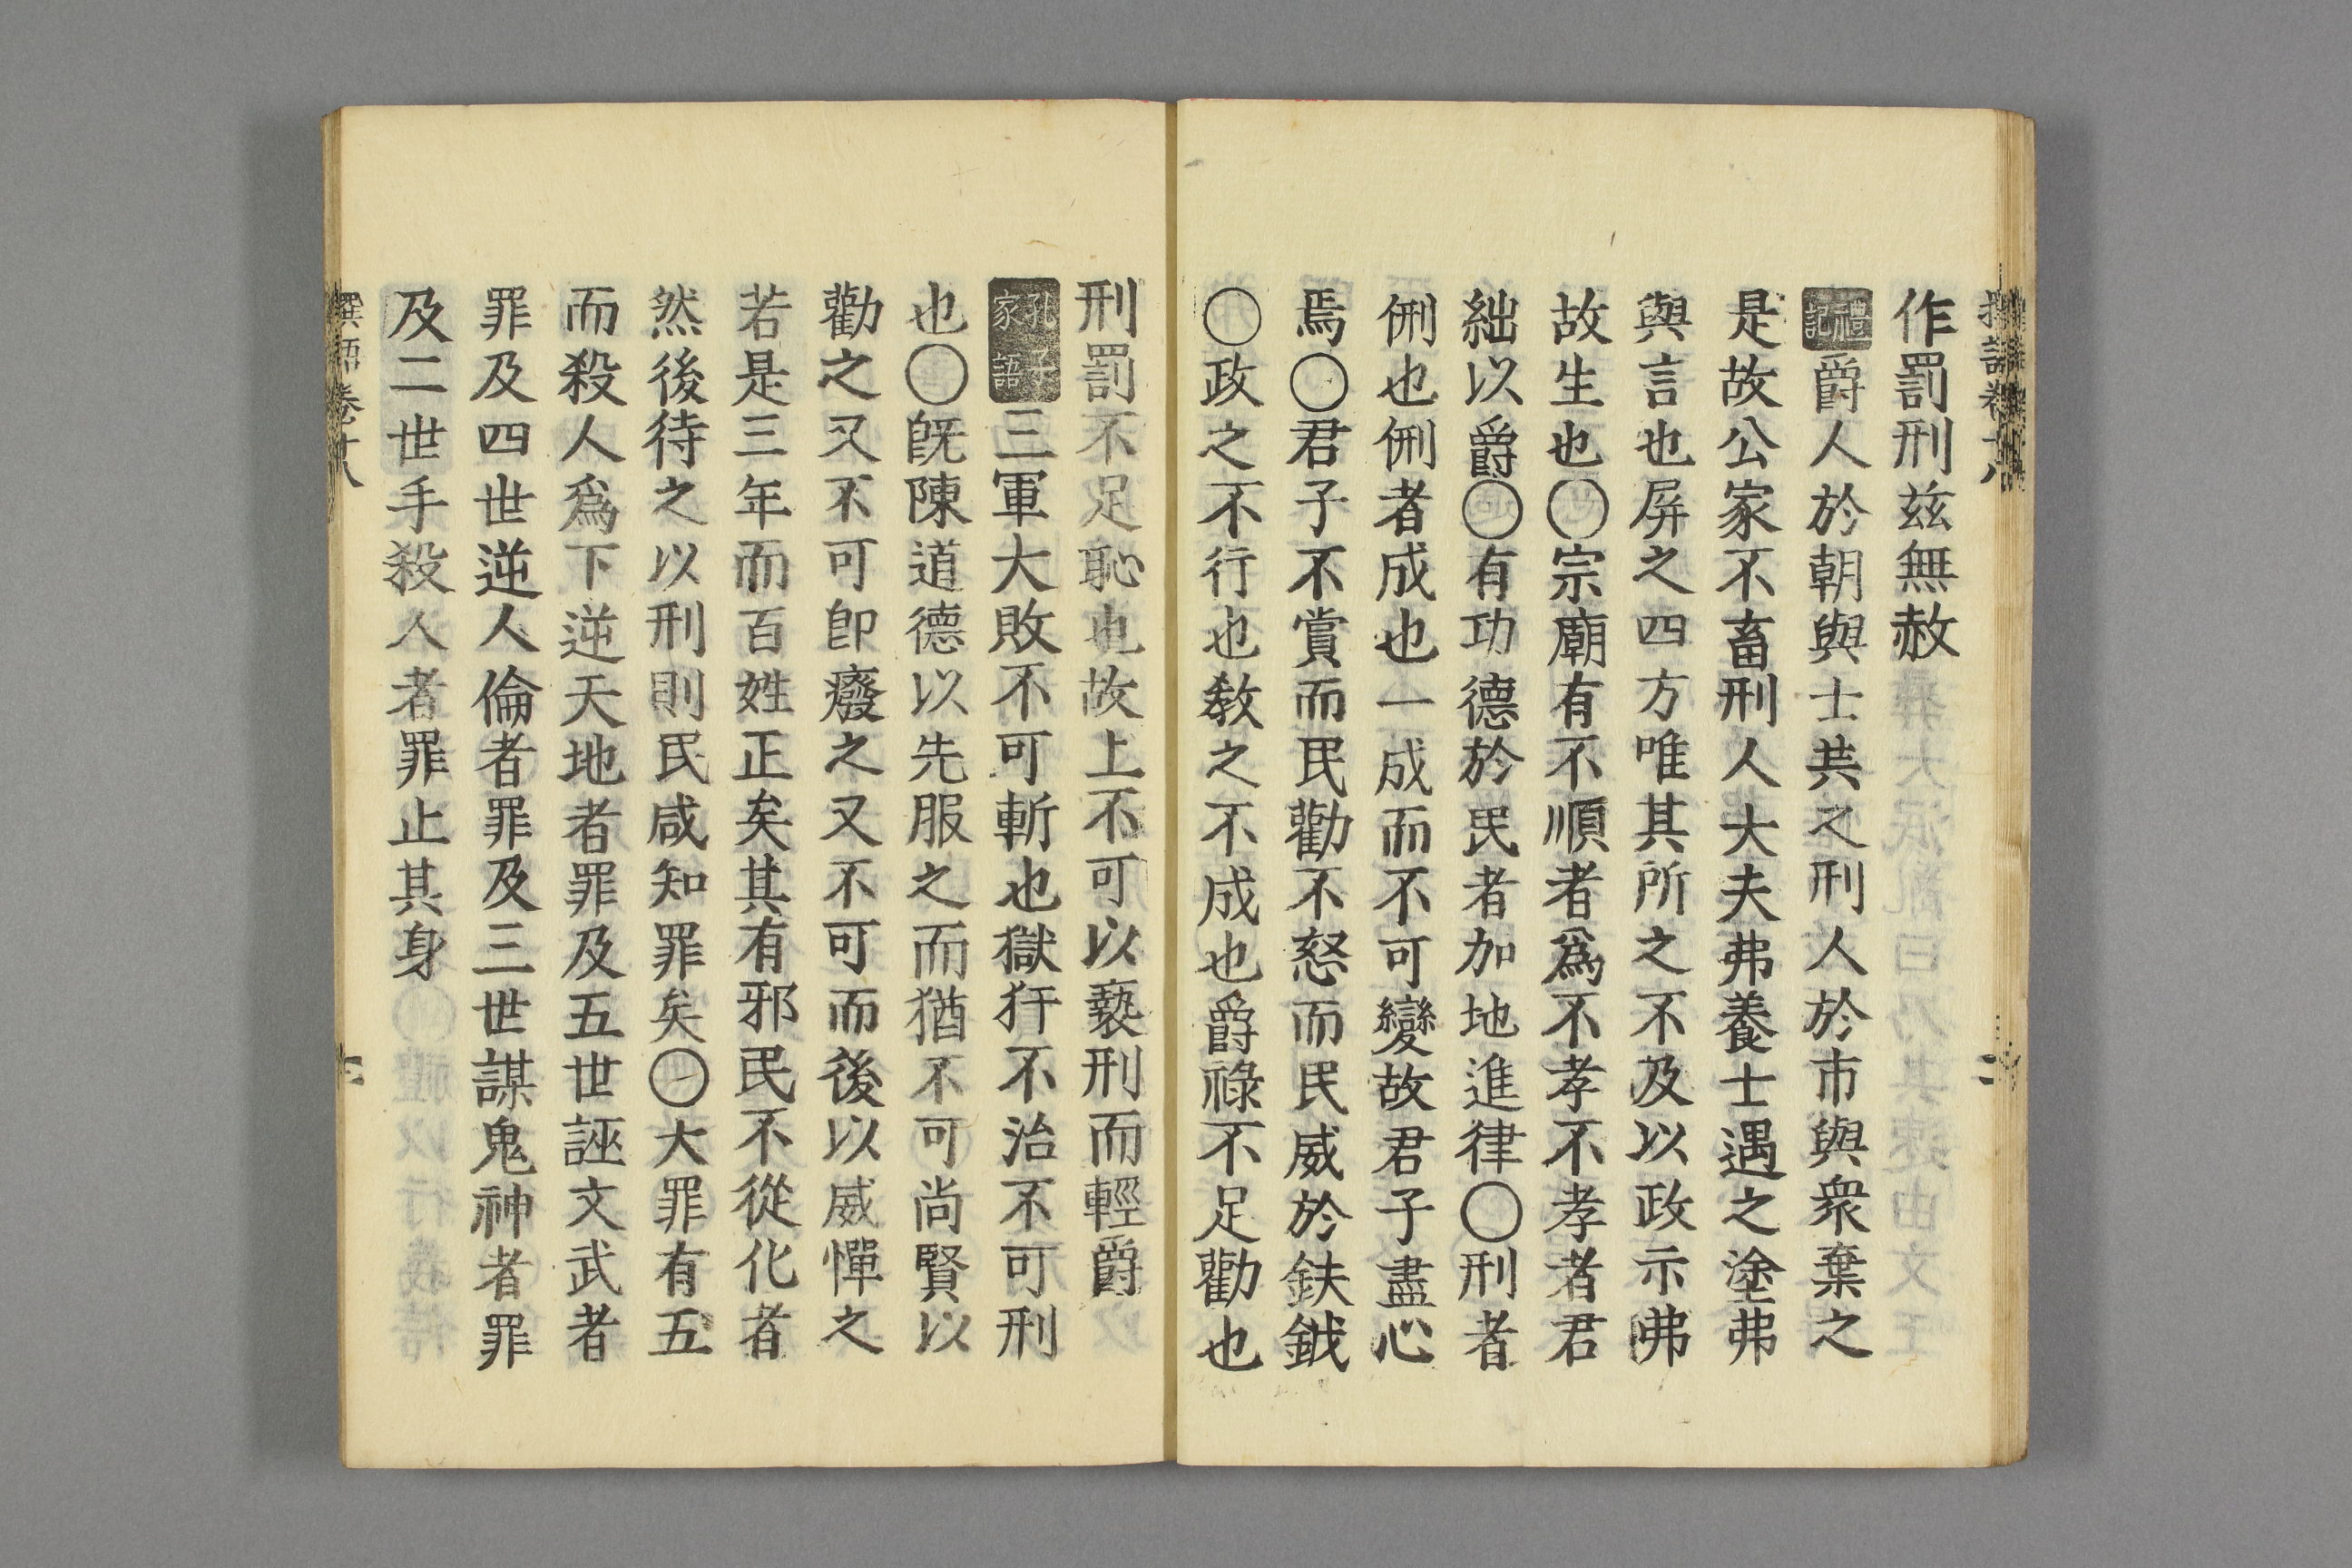 作罰刑玆無赦
禮記爵人於朝與士共之刑人於市與衆棄之
是故公家不畜刑人大夫弗養士遇之塗弗
與言也屏之四方唯其所之不及以政示弗
故生也〇宗廟有不順者爲不孝不孝者君
絀以爵〇有功德於民者加地進律〇刑者
侀也侀者成也一成而不可變故君子盡心
焉〇君子不賞而民勸不怒而民威於鈇鉞
〇政之不行也敎之不成也爵祿不足勸也
刑罰不足恥也故上不可以褻刑而輕爵
孔子家語三軍大敗不可斬也獄犴不治不可刑
也〇旣陳道德以先服之而猶不可尚賢以
勸之又不可卽癈之又不可而後以威憚之
若是三年而百姓正矣其有邪民不從化者
然後待之以刑則民咸知罪矣〇大罪有五
而殺人爲下逆天地者罪及五世誣文武者
罪及四世逆人倫者罪及三世謀鬼神者罪
及二世手殺人者罪止其身